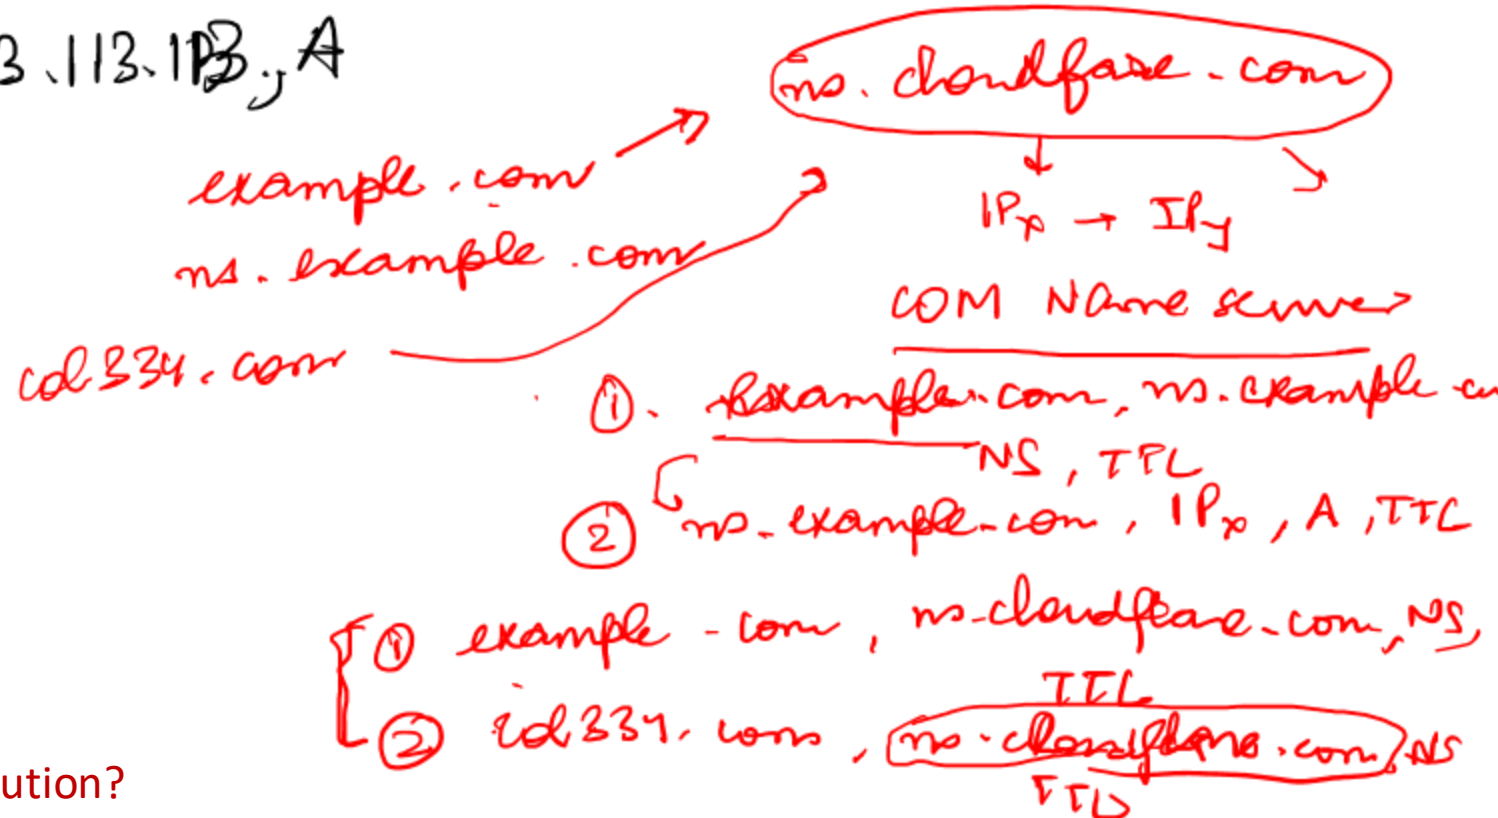 3.113.113, A
ns.cloudflare.com
example.com
IPx → IPy
ns.example.com
COM Name server
col334.com
①. example.com, ns.example.co
NS, TTL
② ns.example.com, IPx, A, TTL
① example.com, ns.cloudflare.com, NS,
TTL
② col334.com, ns.cloudflare.com, NS
TTL
ution?